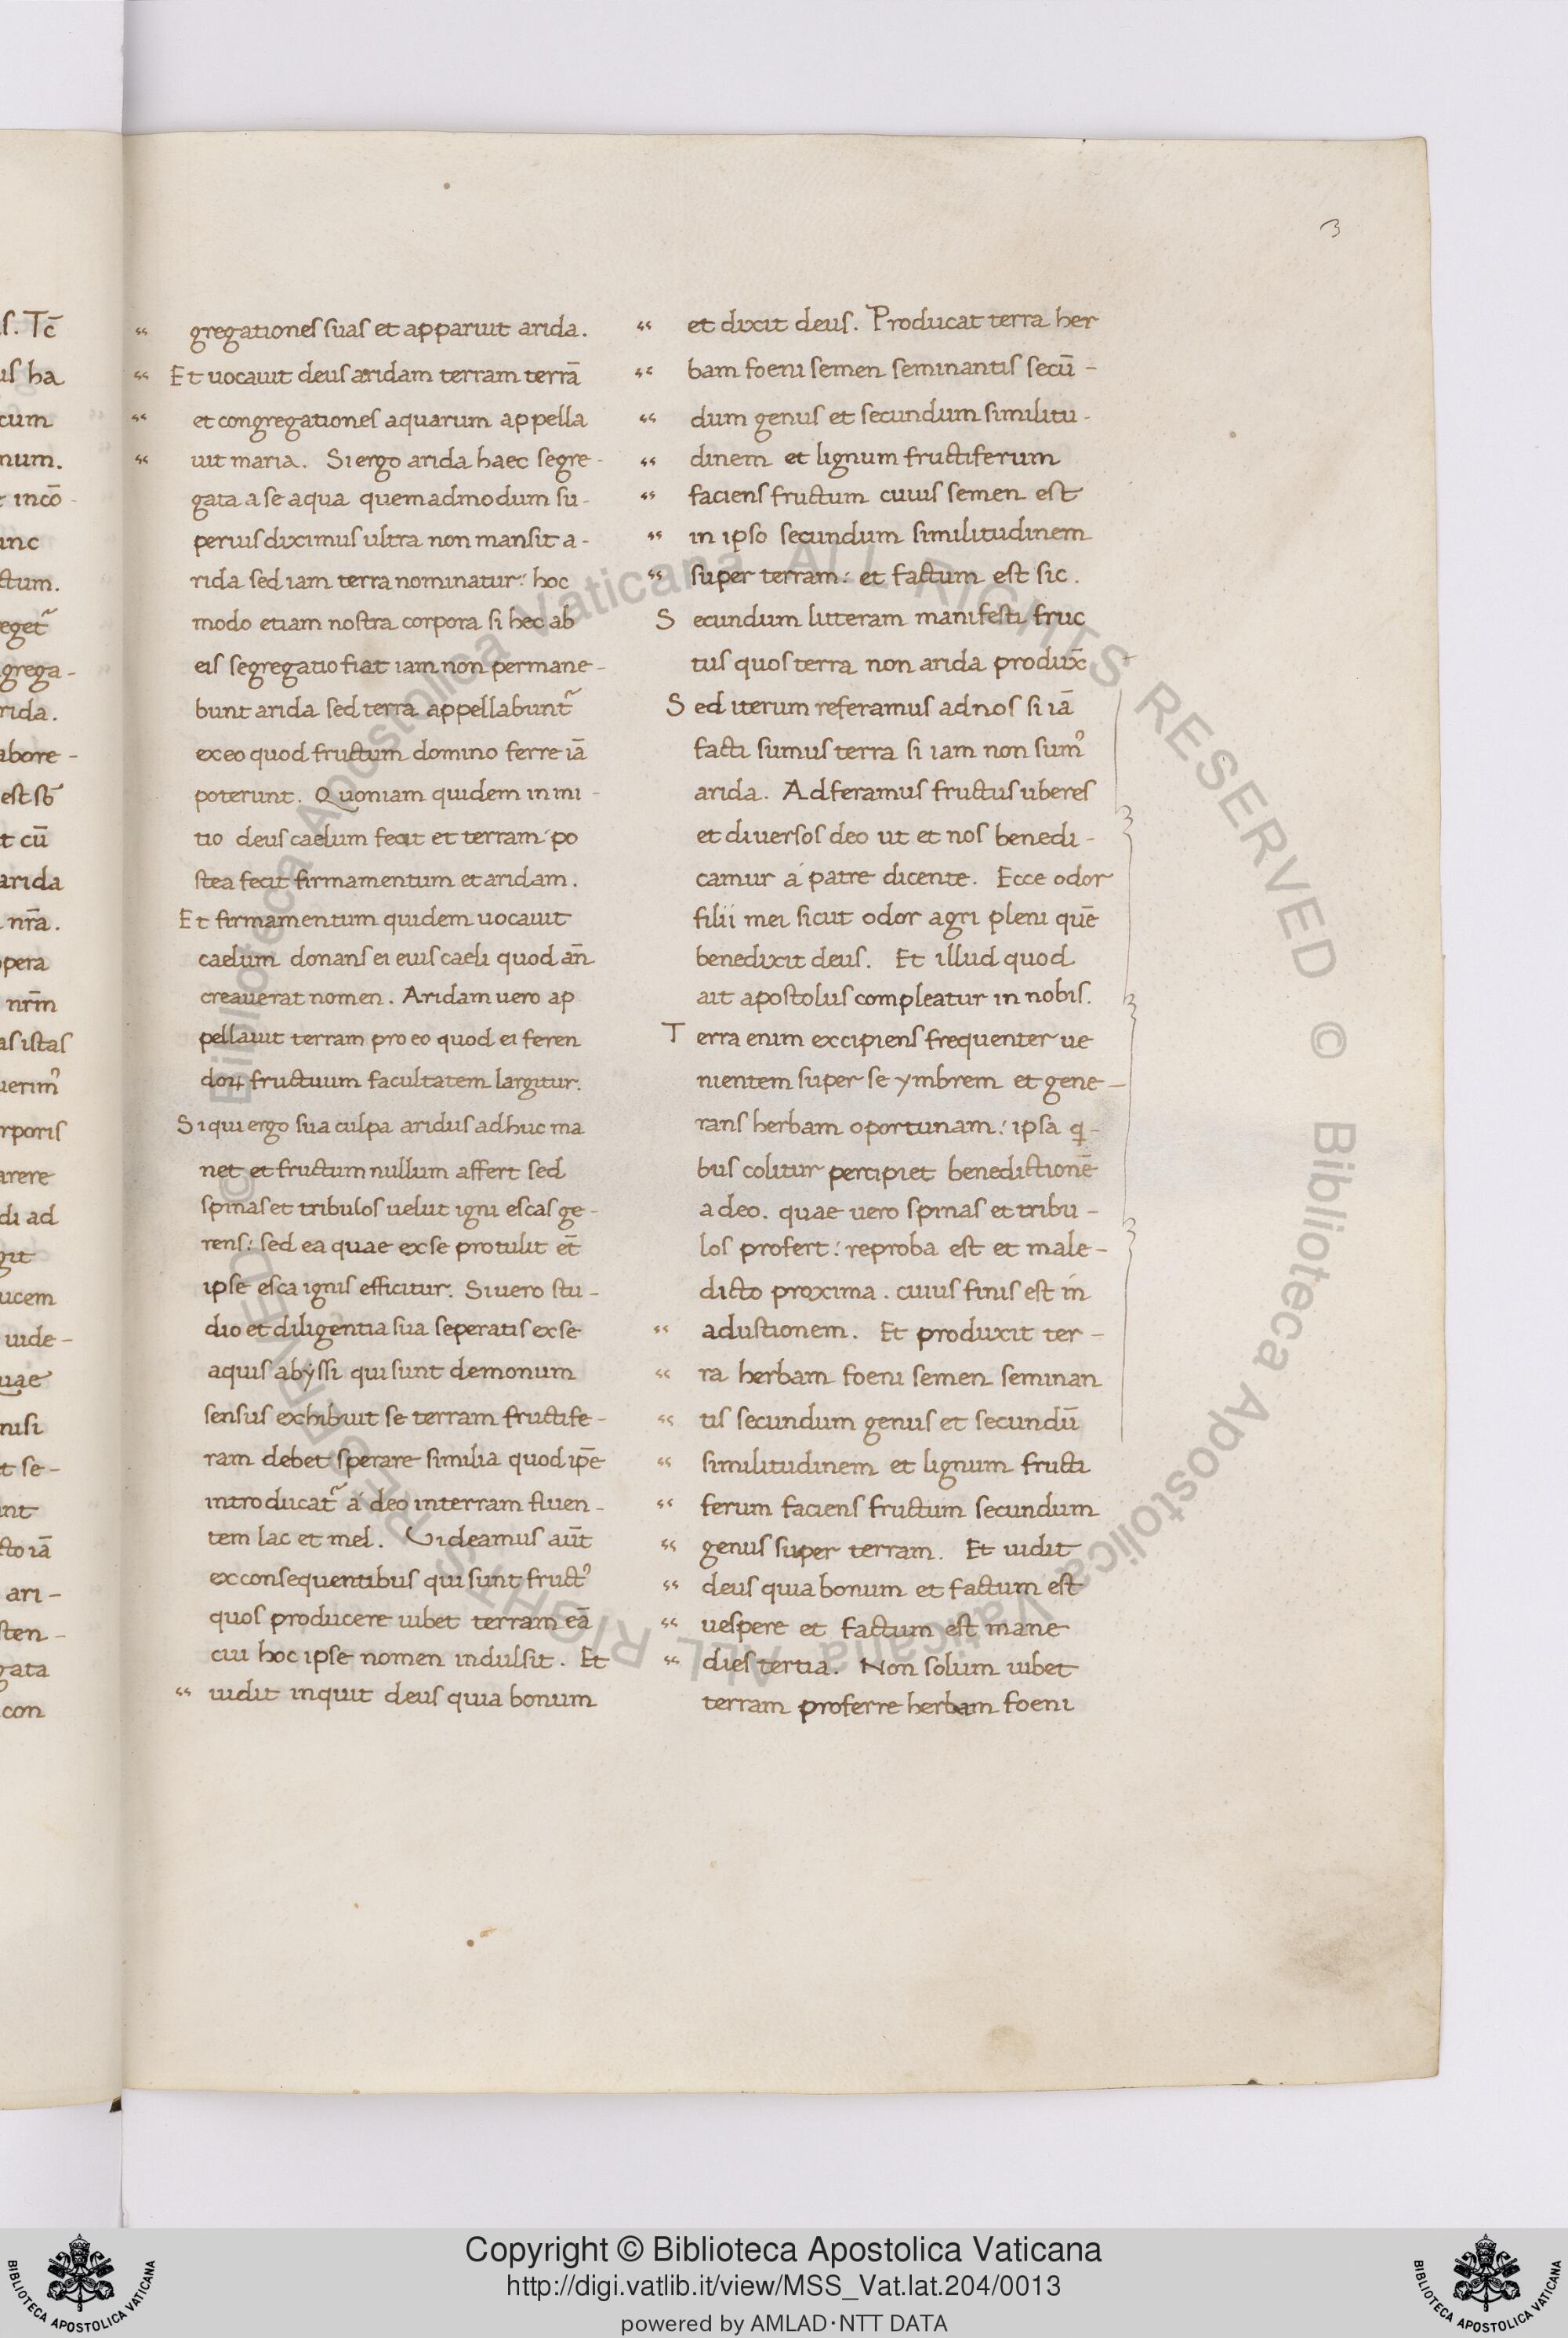 s. Tc̄
us ha
cum
num.
t incō-
unc
ctum.
eget᷑
grega-
rida.
abore-
est sb̄
t cū
arida
nr̄a.
opera
nr̄m
as istas
uerim᾽
rporis
arere
di ad
git
ucem
uide-
uae
nisi
t se-
unt
cto iā
ari-
sten-
gata
con
3
“ gregationes suas et apparuit arida.
“ Et uocauit deus aridam terram terrā
“ et congregationes aquarum appella
“ uit maria. Si ergo arida haec segre-
gata a se aqua quemadmodum su-
perius diximus ultra non mansit a-
rida sed iam terra nominatur: hoc
modo etiam nostra corpora si hec ab
eis segregatio fiat iam non permane-
bunt arida sed terra appellabunt᷑
ex eo quod fructum domino ferre iā
poterunt. Quoniam quidem in ini-
tio deus caelum fecit et terram: po
stea fecit firmamentum et aridam.
Et firmamentum quidem uocauit
caelum donans ei eius caeli quod an̄
creauerat nomen. Aridam uero ap
pellauit terram pro eo quod ei feren
doꝝ fructuum facultatem largitur.
Si qui ergo sua culpa aridus adhuc ma
net et fructum nullum affert sed
spinas et tribulos uelut igni escas ge-
rens: sed ea quae ex se protulit et̄
ipse esca ignis efficitur. Si uero stu-
dio et diligentia sua seperatis ex se
aquis abyssi qui sunt demonum
sensus exhibuit se terram fructife-
ram debet sperare similia quod ip̄e
introducat᷑ á deo in terram fluen-
tem lac et mel. Uideamus aūt
ex consequentibus qui sunt fruct᾽
quos producere iubet terram eā
cui hoc ipse nomen indulsit. Et
“ uidit inquit deus quia bonum
“ et dixit deus. Producat terra her
“ bam foeni semen seminantis secū-
“ dum genus et secundum similitu-
“ dinem et lignum fructiferum
“ faciens fructum cuius semen est
“ in ipso secundum similitudinem
“ super terram: et factum est sic.
Secundum litteram manifesti fruc
tus quos terra non arida produx̄
Sed iterum referamus ad nos si iā
facti sumus terra si iam non sum᾽
arida. Adferamus fructus uberes
et diuersos deo ut et nos benedi-
camur á patre dicente. Ecce odor
filii mei sicut odor agri pleni quē
benedixit deus. Et illud quod
ait apostolus compleatur in nobis.
Terra enim excipiens frequenter ue
nientem super se ymbrem et gene-
rans herbam oportunam: ipsa q̇-
bus colitur percipiet benedictionē
a deo. quae uero spinas et tribu-
los profert: reproba est et male-
dicto proxima. cuius finis est in
“ adustionem. Et produxit ter-
“ ra herbam foeni semen seminan
“ tis secundum genus et secundū
“ similitudinem et lignum fructi
“ ferum faciens fructum secundum
“ genus super terram. Et uidit
“ deus quia bonum et factum est
“ uespere et factum est mane
“ dies tertia. Non solum iubet
terram proferre herbam foeni
© Biblioteca Apostolica Vaticana ALL RIGHTS RESERVED © Biblioteca Apostolica Vaticana ALL RIGHTS RESERVED
Copyright © Biblioteca Apostolica Vaticana
http://digi.vatlib.it/view/MSS_Vat.lat.204/0013
powered by AMLAD·NTT DATA
BIBLIOTECA APOSTOLICA VATICANA
BIBLIOTECA APOSTOLICA VATICANA